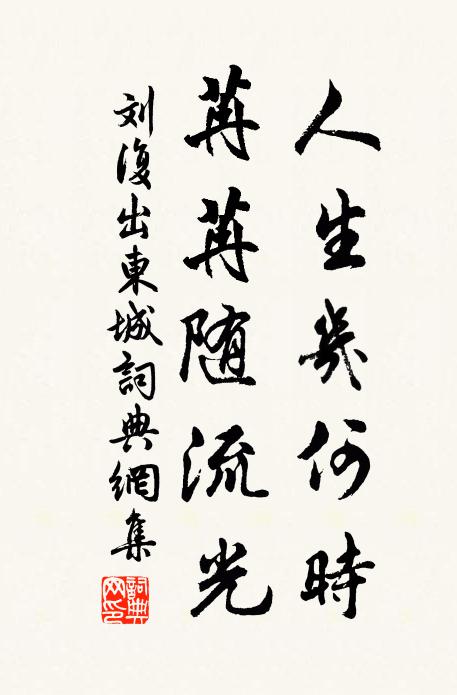 人生幾何時
苒苒随流光
刘復出東城詞典網集
詞典網印